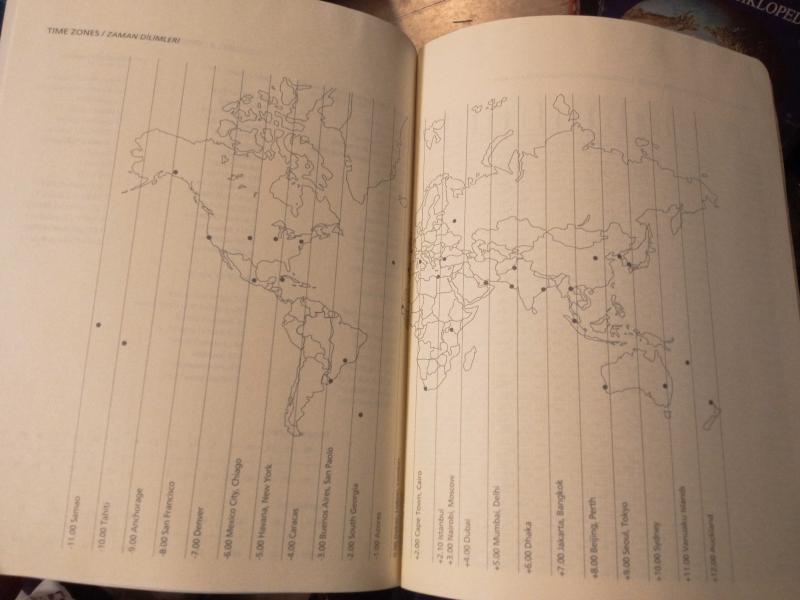 TIME ZONES / ZAMAN DİLİMLERİ
-11.00 Samao
-10.00 Tahiti
-9.00 Anchorage
-8.00 San Francisco
-7.00 Denver
-6.00 Mexico City, Chiago
-5.00 Havana, New York
-4.00 Caracas
-3.00 Buenos Aires, San Paolo
-2.00 South Georgia
-1.00 Azores
+2.00 Cape Town, Cairo
+2.10 Istanbul
+3.00 Nairobi, Moscow
+4.00 Dubai
+5.00 Mumbai, Delhi
+6.00 Dhaka
+7.00 Jakarta, Bangkok
+8.00 Beijing, Perth
+9.00 Seoul, Tokyo
+10.00 Sydney
+11.00 Vanuaku islands
+12.00 Auckland